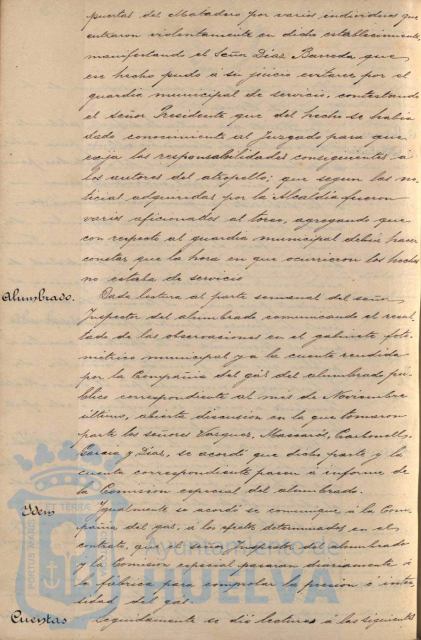 puertas del Matadero por varios individuos que
entraron violentamente en dicho establecimiento,
manifestando el Señor Diaz Barreda que
ese hecho pudo a su juicio evitarse por el
guardia municipal de servicio, contestando
el señor Presidente que del hecho se habia
dado conocimiento al Juzgado para que
exija las responsabilidades consiguientes á
los autores del atropello; que segun las no-
ticias adquiridas por la Alcaldía fueron
varios aficionados al toreo, agregando que
con respecto al guardia municipal debia hacer
constar que la hora en que ocurrieron los hechos
no estaba de servicio
Alumbrado. Dada lectura al parte semanal del señor
Inspector del alumbrado comunicando el resul-
tado de las observaciones en el gabinete foto-
métrico municipal y a la cuenta rendida
por la Compañia del gas del alumbrado pú-
blico correspondiente al mes de Noviembre
último, abierta discusion en la que tomaron
parte los señores Vazquez, Massaró, Carbonell,
Garcia y Diaz, se acordó que dicho parte y la
cuenta correspondiente pasen á informe de
la Comision especial del alumbrado.
Idem Igualmente se acordó se comunique á la Com-
pañia del gas, á los efectos determinados en el
contrato, que el señor Inspector del alumbrado
y la Comision especial pasaran diariamente á
la fábrica para comprobar la presion é inten-
sidad del gas.
Cuentas Seguidamente se dió lectura á las siguientes
PORTUS MARIS ET TERRÆ
Ayuntamiento de
HUELVA